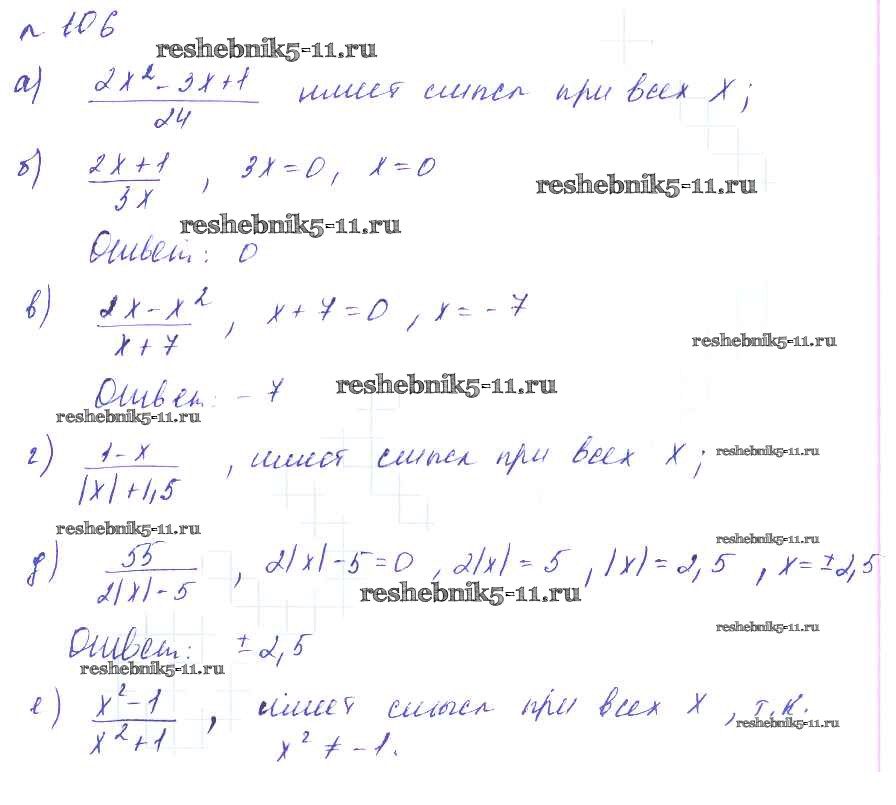 n 106
reshebnik5-11.ru
а) (2x² - 3x + 1)/24 имеет смысл при всех x;
б) (2x + 1)/3x, 3x = 0, x = 0
reshebnik5-11.ru
reshebnik5-11.ru
Ответ: 0
в) (2x - x²)/(x + 7), x + 7 = 0, x = -7
reshebnik5-11.ru
Ответ: -7
reshebnik5-11.ru
reshebnik5-11.ru
г) (1 - x)/(|x| + 1,5), имеет смысл при всех x;
reshebnik5-11.ru
reshebnik5-11.ru
reshebnik5-11.ru
д) 55/(2|x| - 5), 2|x| - 5 = 0, 2|x| = 5, |x| = 2,5, x = ±2,5
reshebnik5-11.ru
reshebnik5-11.ru
Ответ: ±2,5
reshebnik5-11.ru
е) (x² - 1)/(x² + 1), имеет смысл при всех x, т.к.
reshebnik5-11.ru
x² ≠ -1.